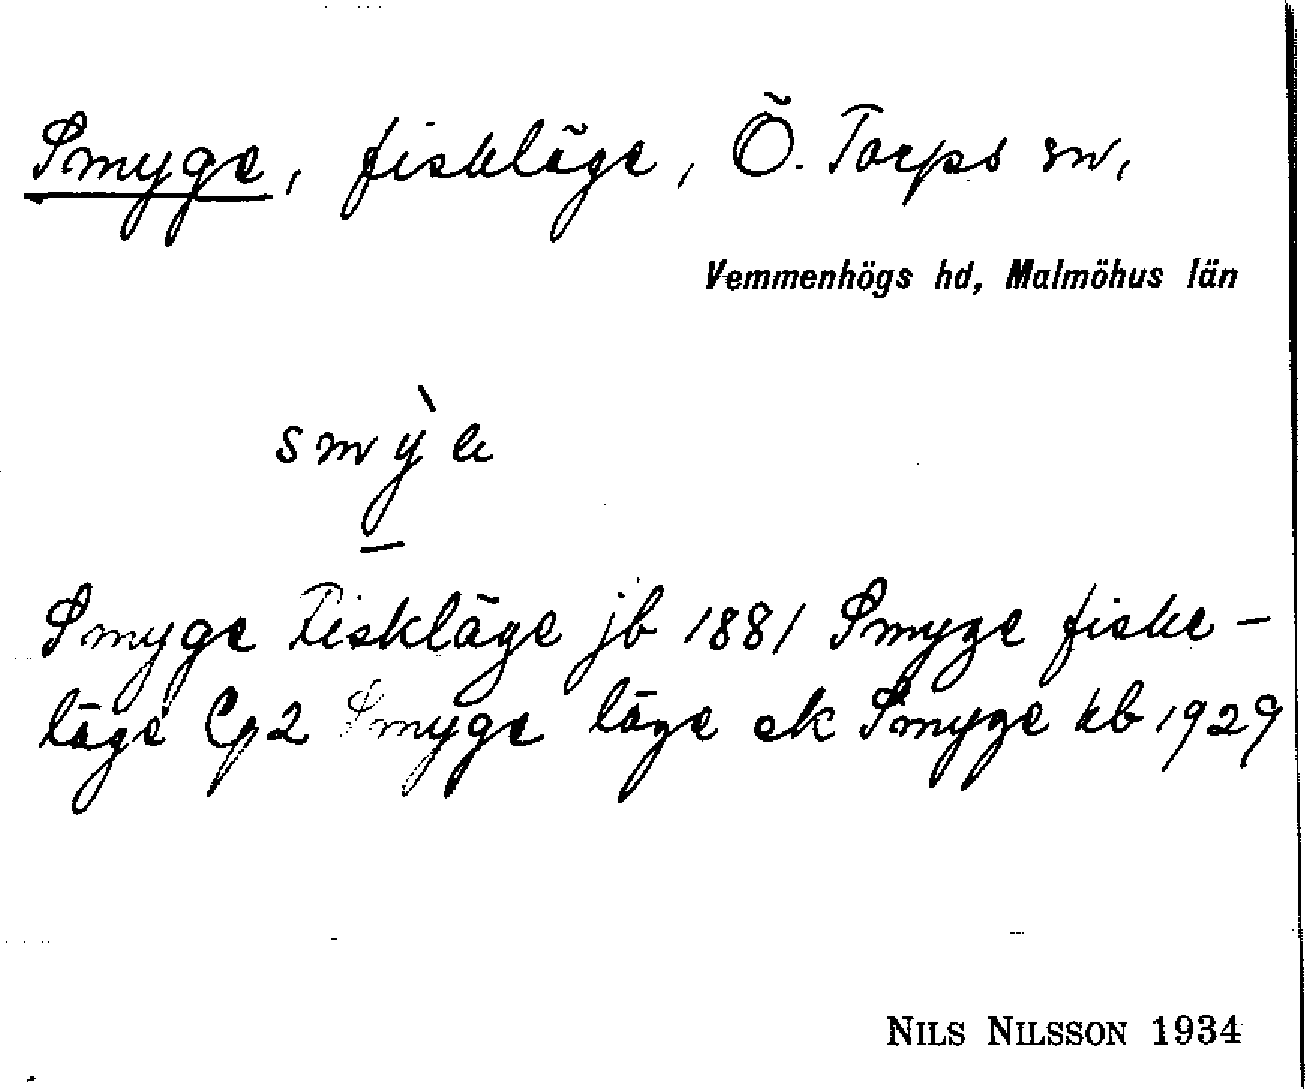 Smyge, fiskläge, Ö. Torps sn,
Vemmenhögs hd, Malmöhus län
smỳa
Smyge Fiskläge jb 1881 Smyge fiske-
läge Cp2 Smyge läge ek Smyge kb 1929
NILS NILSSON 1934